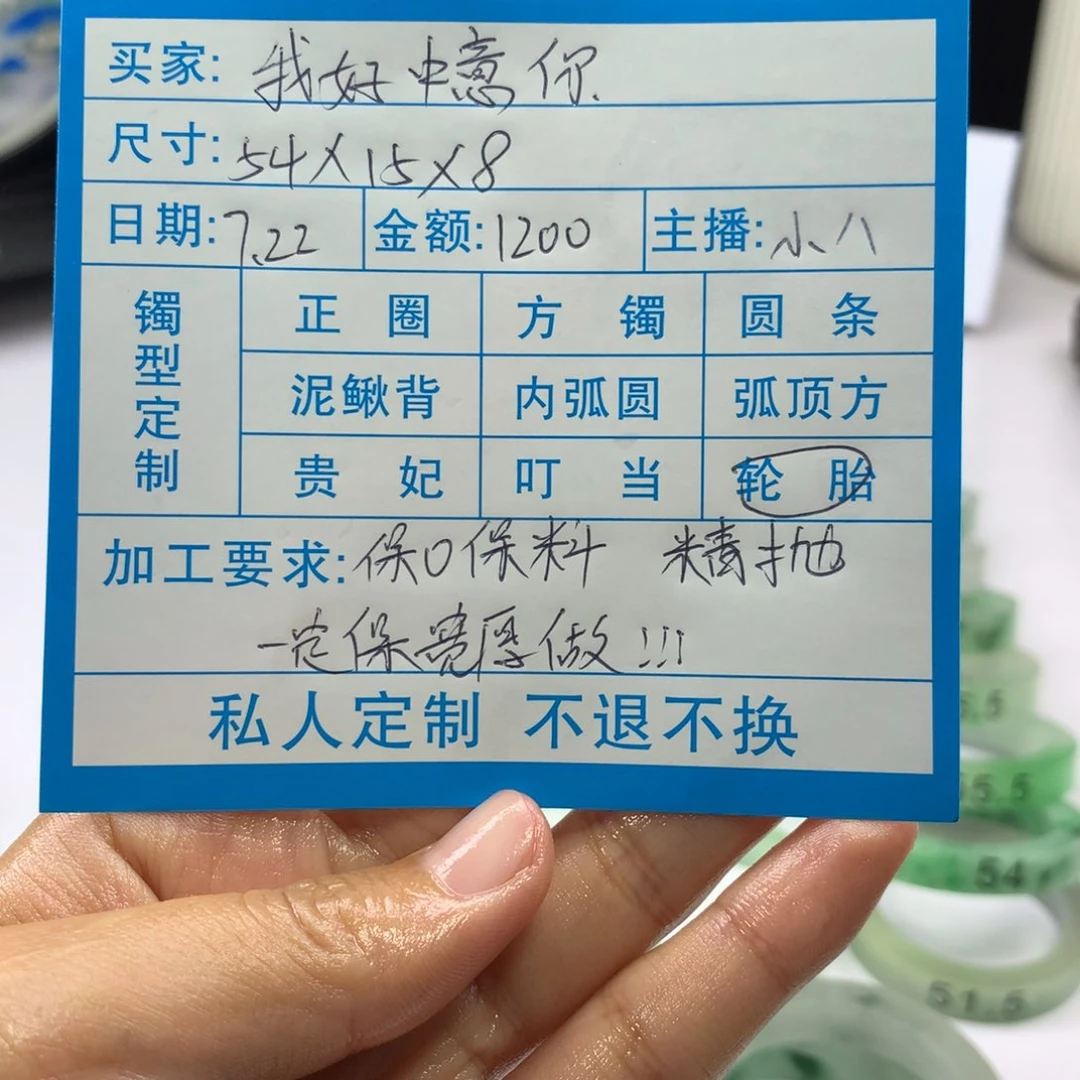 买家: 我好中意你
尺寸: 54×15×8
日期: 7.22 金额: 1200 主播: 小八
镯型定制
正圈 方镯 圆条
泥鳅背 内弧圆 弧顶方
贵妃 叮当 轮胎
加工要求: 保口保料 精抛
一定保宽厚做!!!
私人定制 不退不换
5.5
55.5
54
51.5